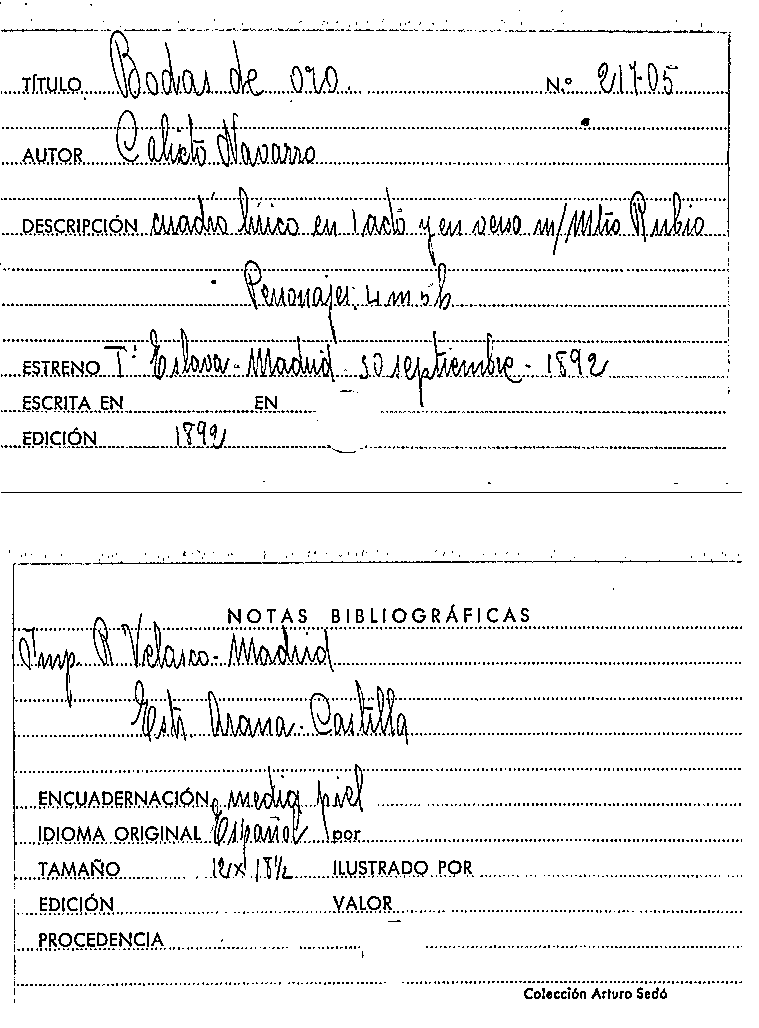 TÍTULO Bodas de oro. N.º 217-05
AUTOR Calixto Navarro
DESCRIPCIÓN cuadro lírico en 1 acto y en verso m/ Mtro Rubio
Personajes: 4 m 5 h
ESTRENO Tº Eslava - Madrid - 30 septiembre - 1892
ESCRITA EN EN
EDICIÓN 1892
NOTAS BIBLIOGRÁFICAS
Imp. R Velasco - Madrid
Estr. Arana - Castilla
ENCUADERNACIÓN media piel
IDIOMA ORIGINAL Español por
TAMAÑO 12 x 18½ ILUSTRADO POR
EDICIÓN VALOR
PROCEDENCIA
Colección Arturo Sedó